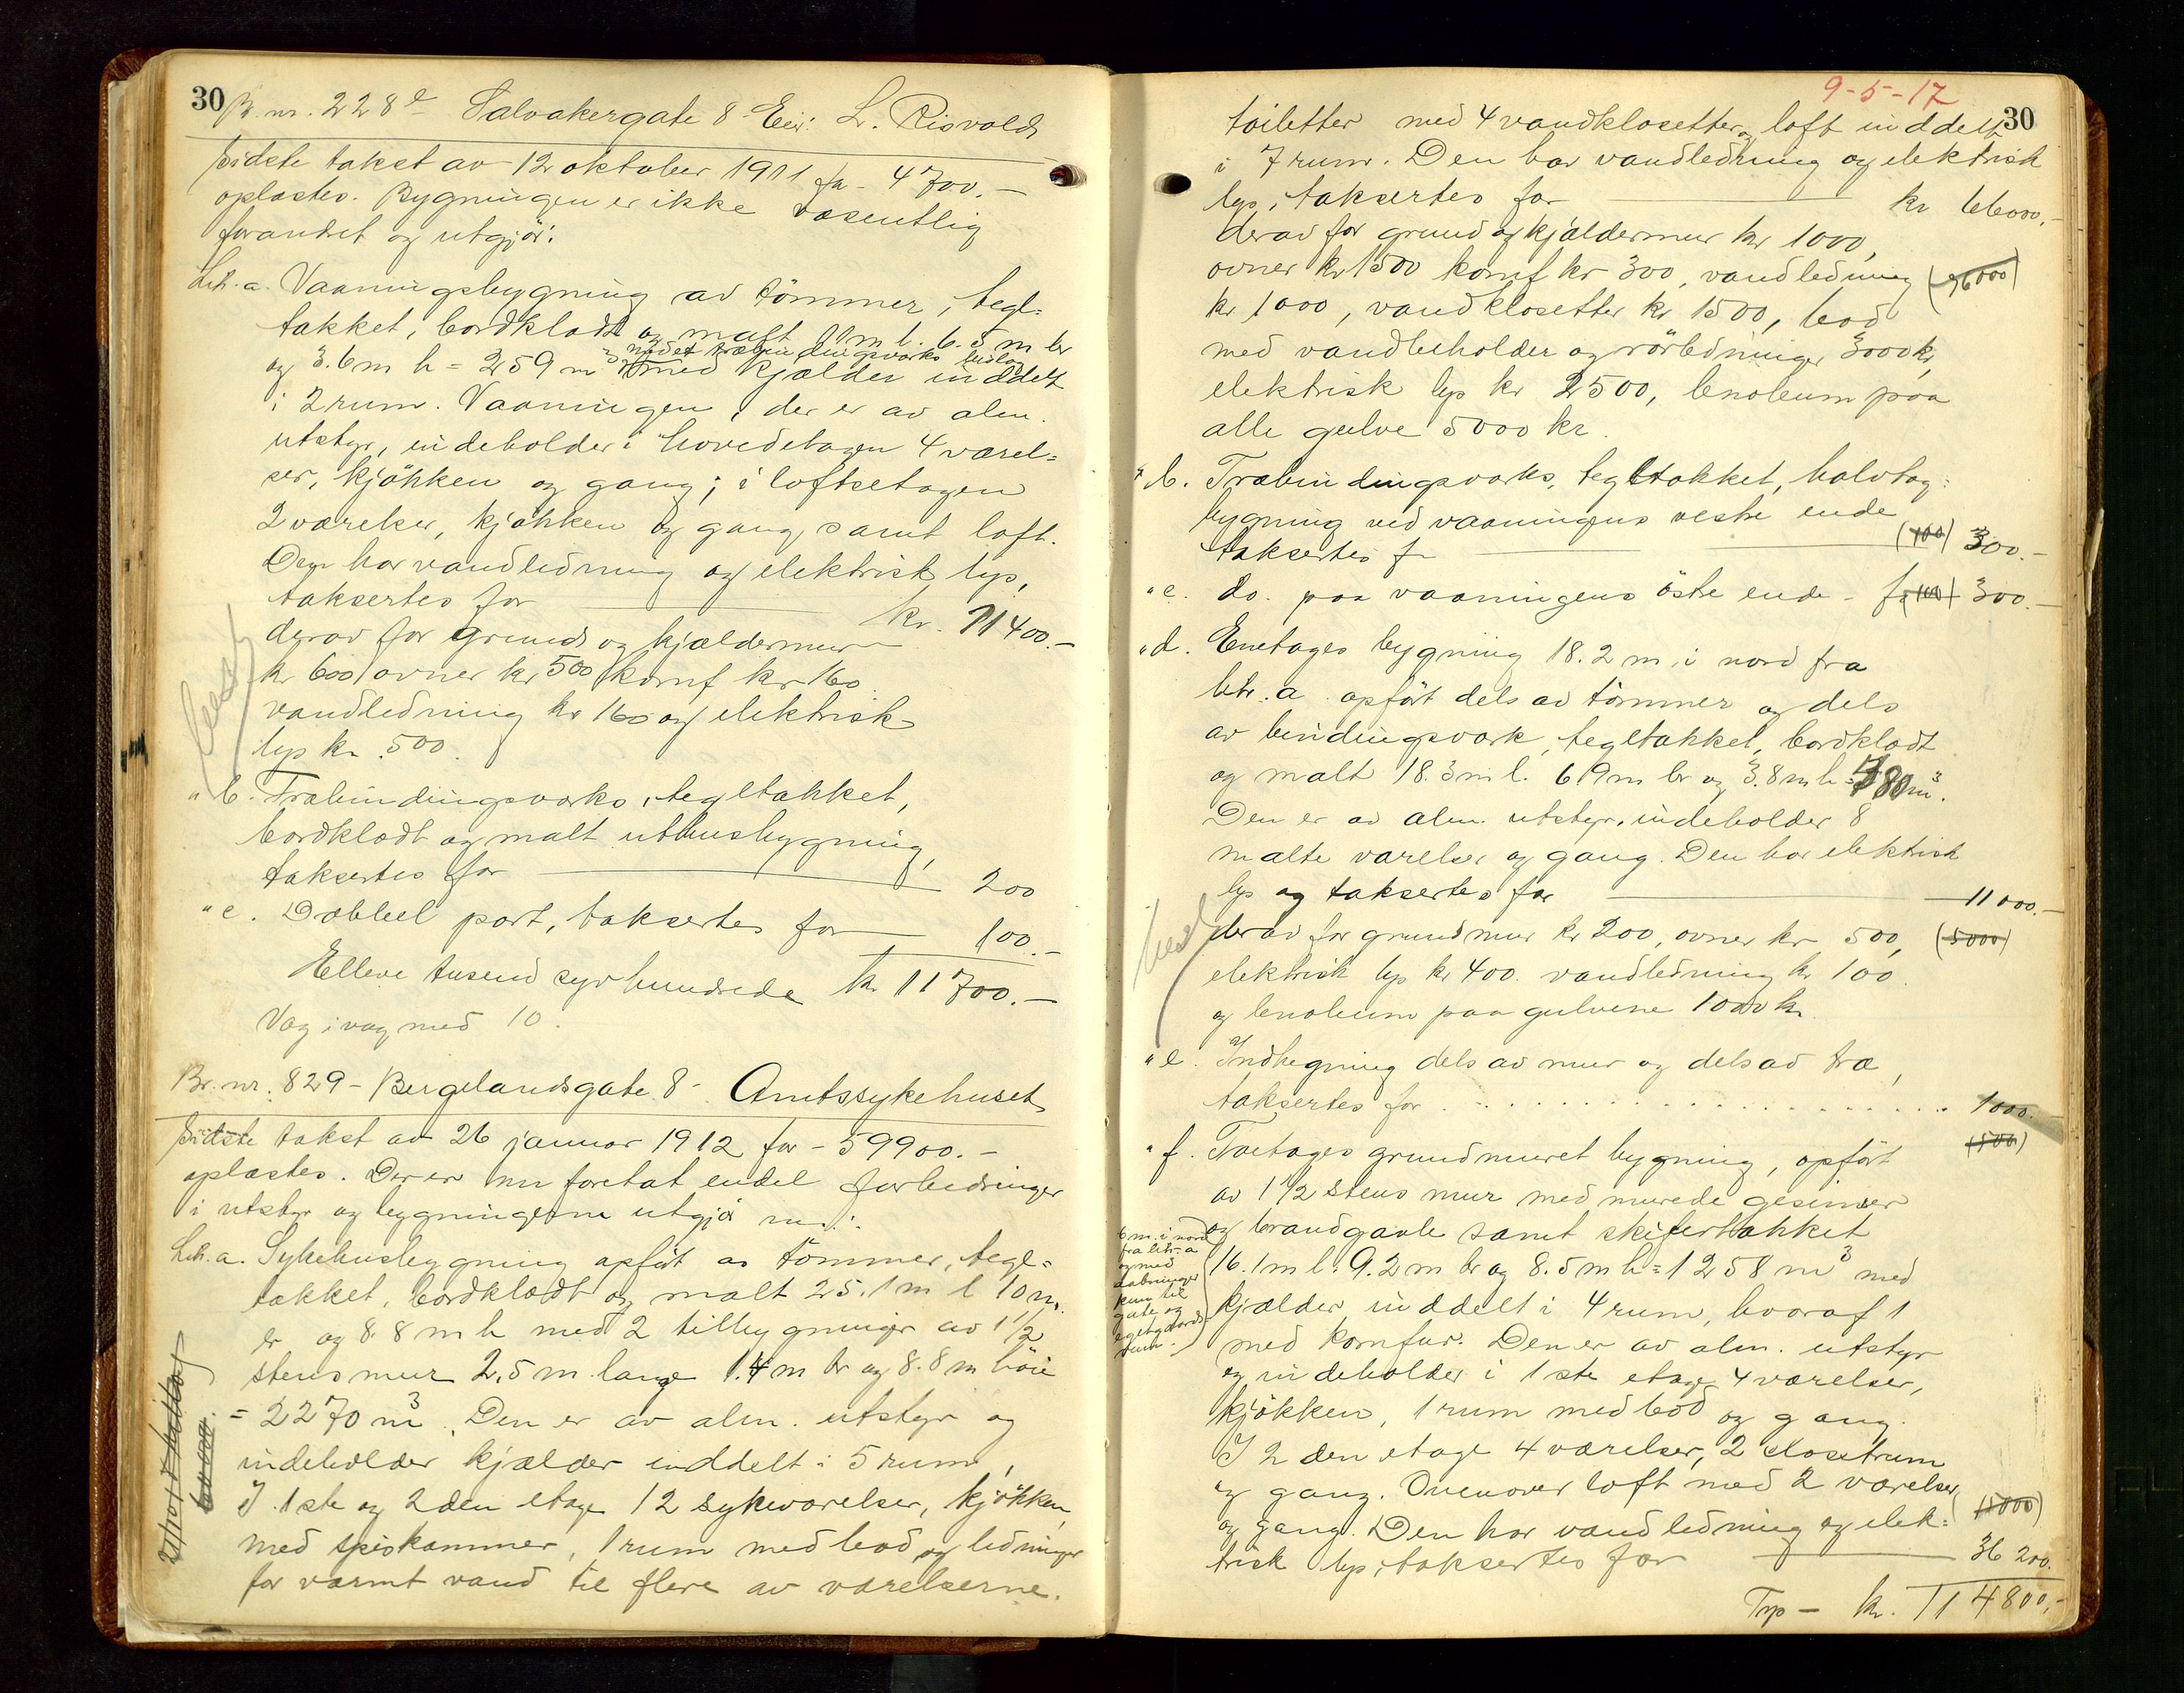 30
Br. nr. 228e Salvakergate 8 Eier: L. Risvold,
Sidste takst av 12 oktober 1911 for - 4700.-
oplæstes. Bygningen er ikke væsentlig
forandret og utgjør:
Litr. a. Vaaningsbygning av tømmer, tegl-
takket, bordklædt og malt 11 m l. 6.5 m br
og 3.6 m h = 259 m3 med kjælder inddelt
i 2 rum. Vaaningen, der er av alm.
utstyr, indeholder i hovedetagen 4 værel-
ser, kjøkken og gang; i loftsetagen
2 værelser, kjøkken og gang, samt loft.
Den har vandledning og elektrisk lys,
taksertes for kr. 11400.-
derav for grund og kjældermur
kr 600, ovner kr 500 komf kr 160
vandledning kr 160 og elektrisk
lys kr. 500.
" b. Træbindingsværks, tegltakket,
bordklædt og malt uthusbygning,
taksertes for 200
" c. Dobbel port, taksertes for 100.-
Elleve tusend syv hundrede kr 11700.-
Væg i væg med 10.
Br. nr. 829 - Bergelandsgate 8 - Amtssykehuset
Sidste takst av 26 januar 1912 for - 59900.-
oplæstes. Der er nu foretat endel forbedringer
i utstyr og bygningerne utgjør nu:
Litr. a. Sykehusbygning opført av tømmer, tegl-
takket, bordklædt og malt 25.1 m l 10 m.
br og 8.8 m h med 2 tilbygninger av 1 1/2
stens mur 2.5 m lange 1.4 m br og 8.8 m høie
= 2270 m3. Den er av alm. utstyr og
indeholder kjælder inddelt i 5 rum,
I 1ste og 2den etage 12 sykeværelser, kjøkken
med spiskammer, 1 rum med bad og ledninger
for varmt vand til flere av værelserne.
9-5-17
30
toiletter med 4 vandklosetter og loft inddelt
i 7 rum. Den har vandledning og elektrisk
lys, taksertes for kr 66000.-
derav for grund og kjældermur kr 1000,
ovner kr 1500 komf kr 300, vandledning
kr 1000, vandklosetter kr 1500, bad
med vandbeholder og rørledninger 3000 kr,
elektrisk lys kr 2500, lenoleum paa
alle gulve 5000 kr.
" b. Træbindingsværks, tegltakket, halvtag-
bygning ved vaaningens vestre ende
taksertes f (400) 300.-
" c. do. paa vaaningens østre ende - f 300.-
" d. Enetages bygning 18.2 m. i nord fra
litr. a opført dels av tømmer og dels
av bindingsværk, tegltakket, bordklædt
og malt 18.3 m l. 6.9 m br og 3.8 m h = 480 m3.
Den er av alm. utstyr, indeholder 8
malte værelser og gang. Den har elektrisk
lys og taksertes for 11000.-
derav for grundmur kr 200, ovner kr 500, (5000)
elektrisk lys kr 400. vandledning kr 100
og lenoleum paa gulvene 1000 kr.
" e. Indhegning dels av mur og dels av træ,
taksertes for 1000.
(500)
" f. Toetages grundmuret bygning, opført
av 1 1/2 stens mur med murede gesimser
og brandgavle samt skifertækket
6 m. i nord
fra litr. a
og med
aabninger
kun til
gate og
eget gaards-
rum.
16.1 m l. 9.2 m br og 8.5 m h = 1258 m3 med
kjælder inddelt i 4 rum, hvoraf 1
med komfur. Den er av alm. utstyr
og indeholder i 1ste etage 4 værelser,
kjøkken, 1 rum med bad og gang.
I 2den etage 4 værelser, 2 klosetrum
og gang. Ovenover loft med 2 værelser
og gang. Den har vandledning og elek-
trisk lys, taksertes for 36200.
Trp - kr. 114800.-